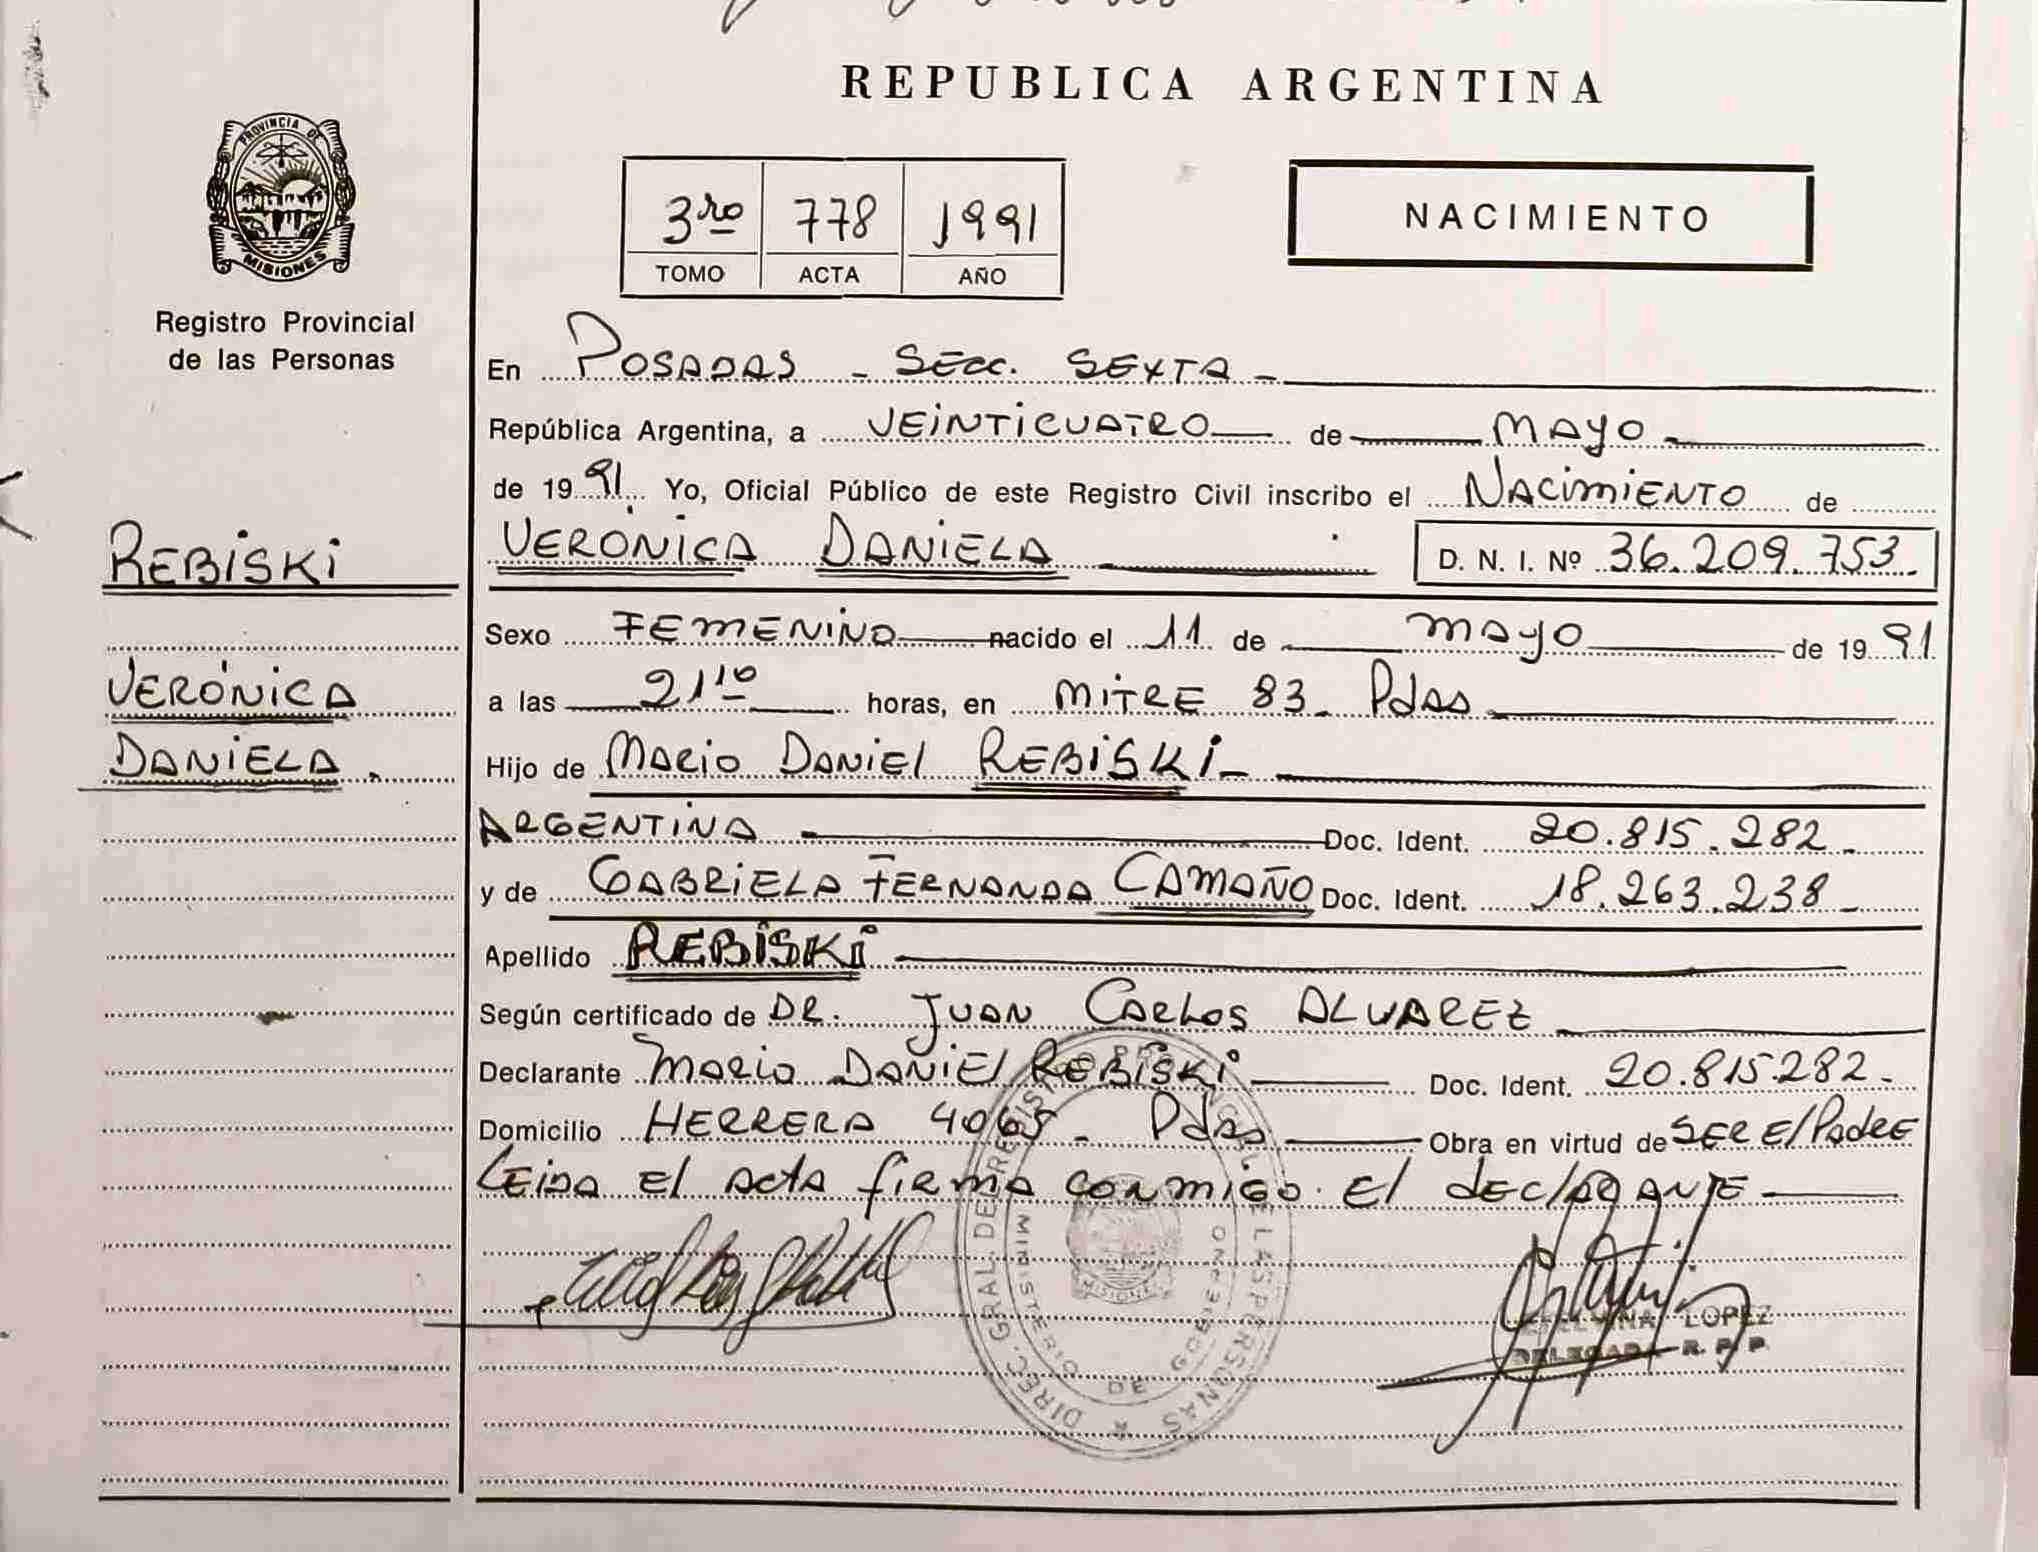 REPUBLICA ARGENTINA
PROVINCIA DE
MISIONES
Registro Provincial
de las Personas
3ro 778 1991
TOMO ACTA AÑO
NACIMIENTO
REBISKI
VERÓNICA
DANIELA.
En POSADAS - SECC. SEXTA -
República Argentina, a VEINTICUATRO de MAYO
de 1991. Yo, Oficial Público de este Registro Civil inscribo el NACIMIENTO de
VERÓNICA DANIELA D. N. I. Nº 36.209.753.
Sexo FEMENINO nacido el 11 de MAYO de 1991
a las 21 10 horas, en MITRE 83 - Pdas
Hijo de MARIO DANIEL REBISKI -
ARGENTINA Doc. Ident. 20.815.282 -
y de GABRIELA FERNANDA CAMAÑO Doc. Ident. 18.263.238 -
Apellido REBISKI
Según certificado de DR. JUAN CARLOS ALVAREZ
Declarante MARIO DANIEL REBISKI Doc. Ident. 20.815.282 -
Domicilio HERRERA 4065 - Pdas Obra en virtud de SER El PADRE
LEIDA El ACTA firma CONMIGO El DEClARANTE
DIREC. GRAL. DE REGISTRO PROVINCIAL DE LAS PERSONAS
MINISTERIO DE GOBIERNO
MISIONES
LOPEZ
DELEGADA R. P. P.